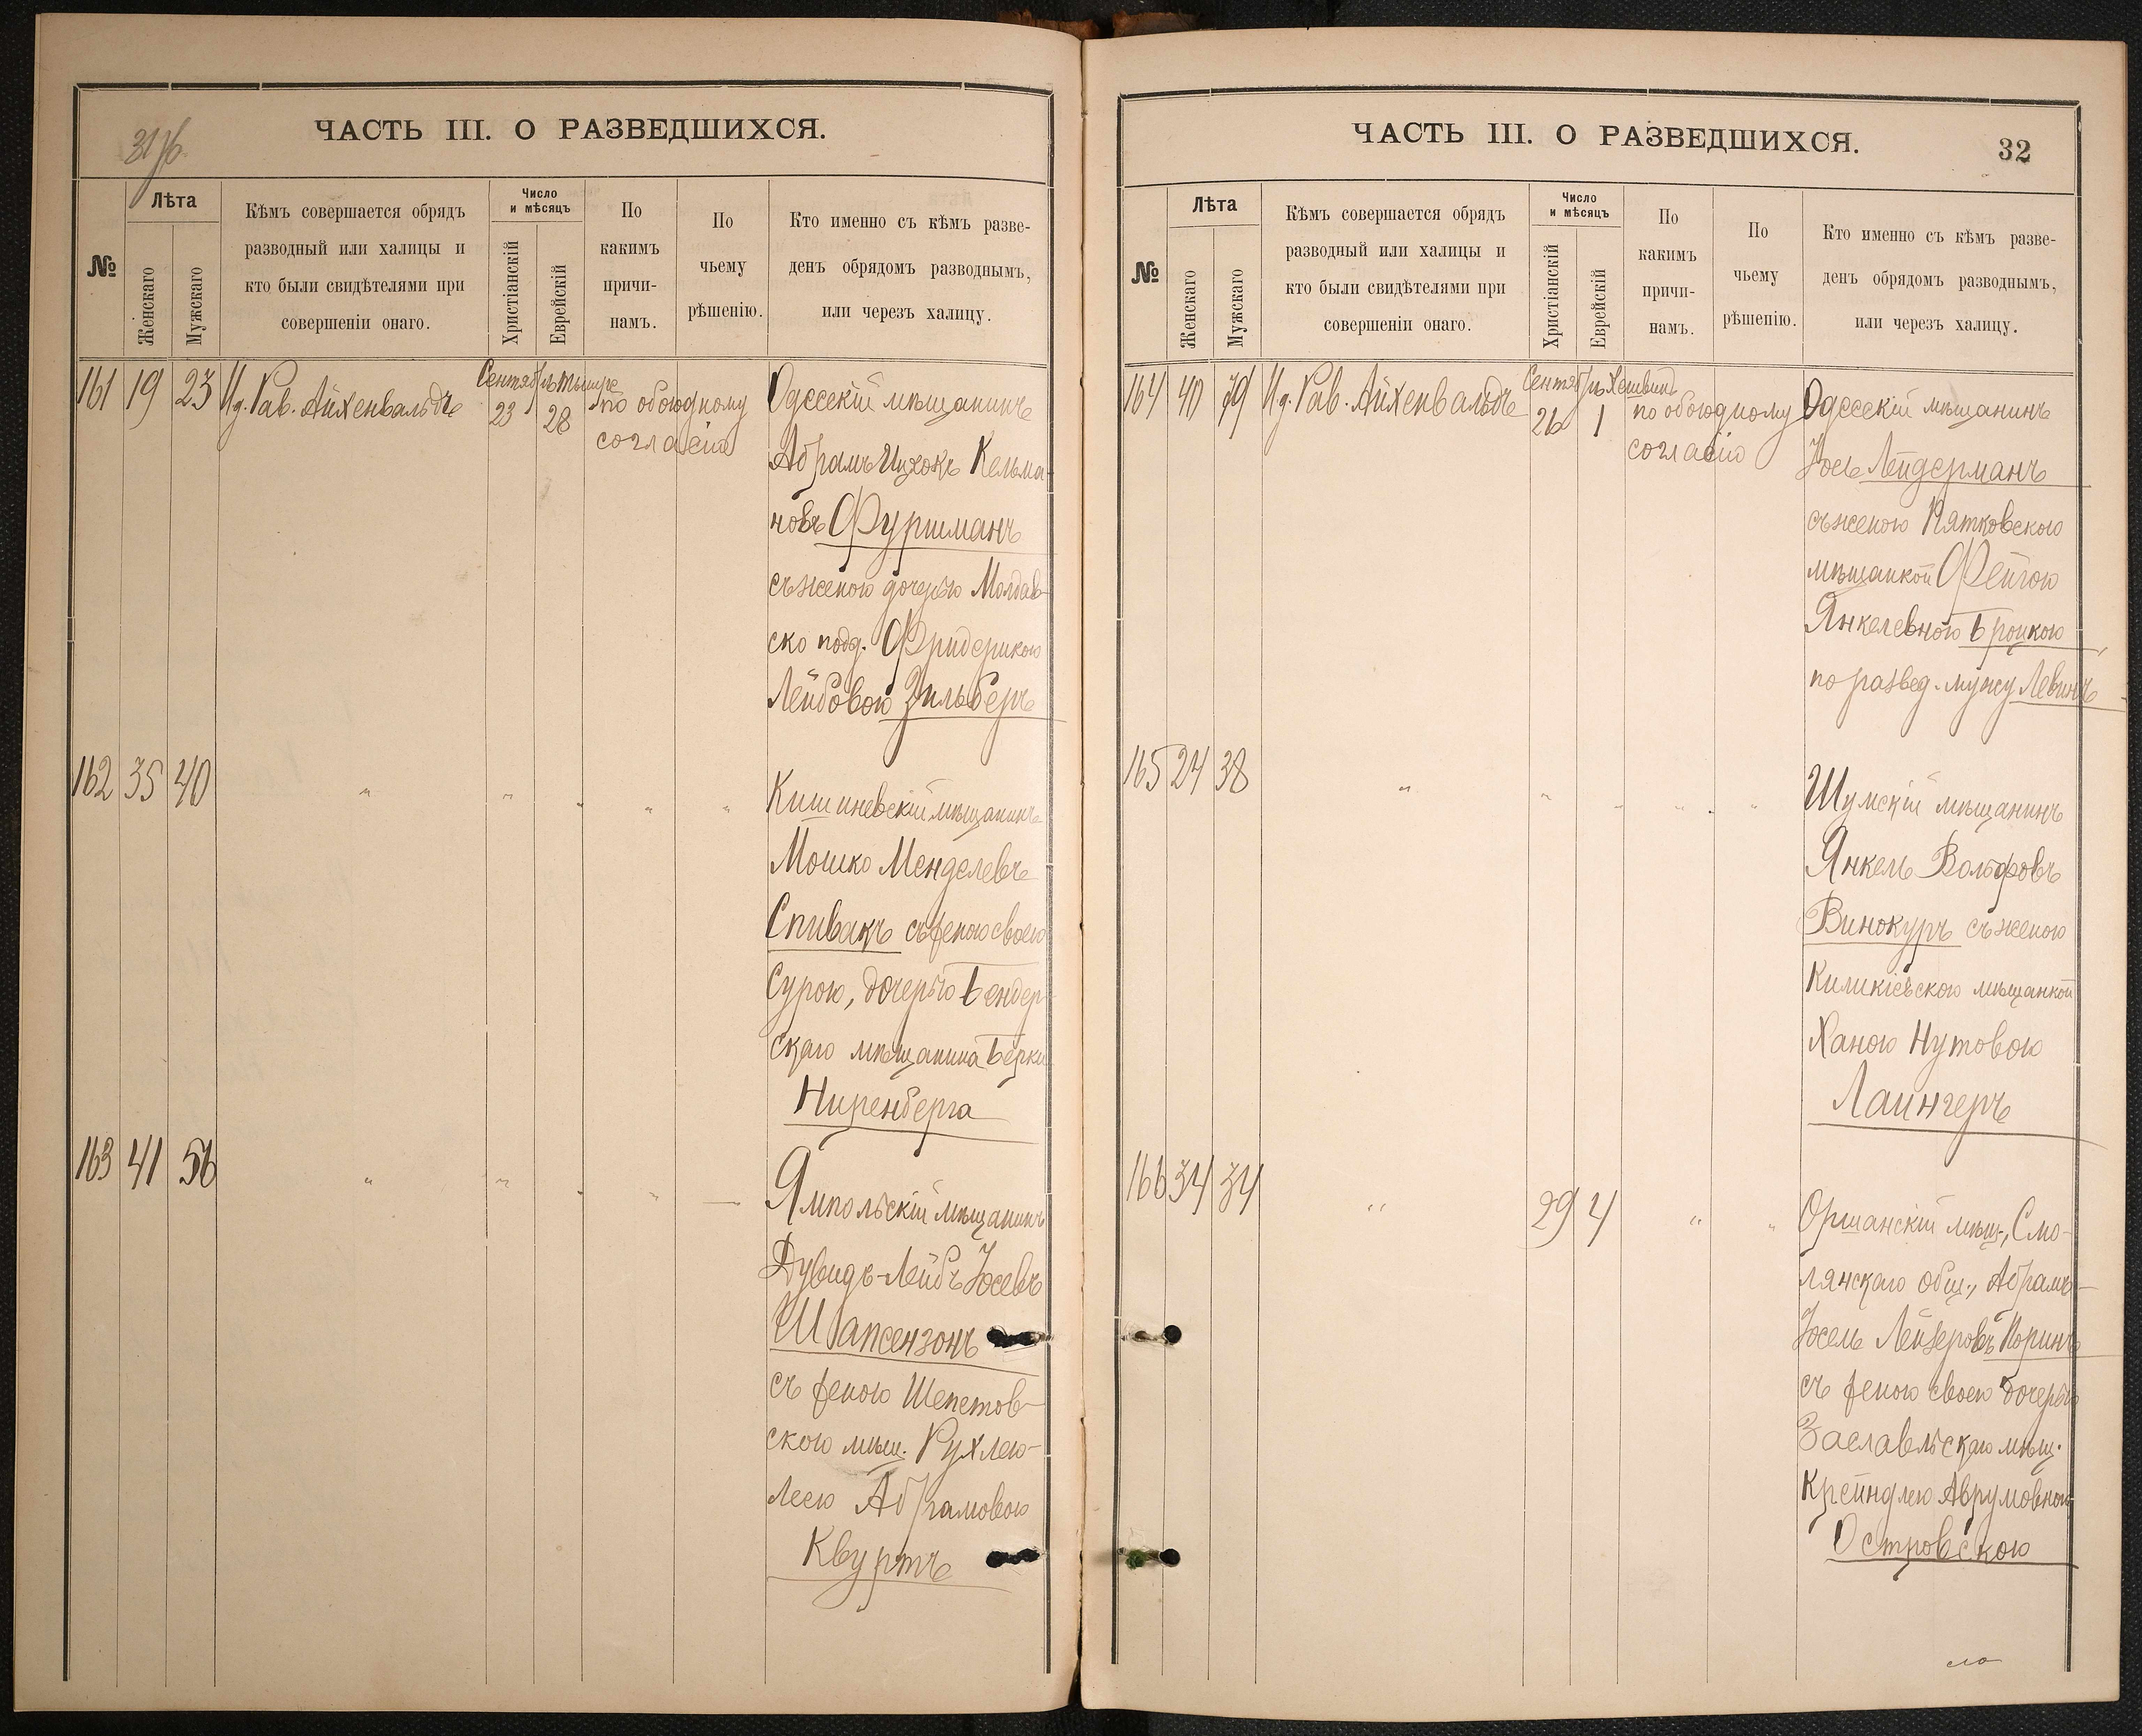 31 об.
ЧАСТЬ III. О РАЗВЕДШИХСЯ.
№
Лѣта
Женскаго
Мужскаго
Кѣмъ совершается обрядъ
разводный или халицы и
кто были свидѣтелями при
совершеніи онаго.
Число
и мѣсяцъ
Христіанскій
Еврейскій
По
какимъ
причи-
намъ.
По
чьему
рѣшенію.
Кто именно съ кѣмъ разве-
денъ обрядомъ разводнымъ,
или черезъ халицу.
161 19 23 Ид. Рав. Айхенвальдъ
Сентябрь Тишре
23 28
по обоюдному
согласію
Одесскій мѣщанинъ
Абрамъ Ицхокъ Кельма-
новъ Фурманъ
съ женою дочерью Молдав-
ско подд. Фридерикою
Лейбовою Зильберъ
162 35 40 " " " " "
Кишиневскій мѣщанинъ
Мошко Менделевъ
Спивакъ съ женою своею
Сурою, дочерью Бендер-
скаго мѣщанина Берки
Ниренберга
163 41 56 " " " " —
Ямпольскій мѣщанинъ
Дувидъ-Лейбъ Іосевъ
Шапсензонъ
съ женою Шепетов-
скою мѣщ. Рухлею-
Леею Абрамовою
Квуртъ
ЧАСТЬ III. О РАЗВЕДШИХСЯ.
32
№
Лѣта
Женскаго
Мужскаго
Кѣмъ совершается обрядъ
разводный или халицы и
кто были свидѣтелями при
совершеніи онаго.
Число
и мѣсяцъ
Христіанскій
Еврейскій
По
какимъ
причи-
намъ.
По
чьему
рѣшенію.
Кто именно съ кѣмъ разве-
денъ обрядомъ разводнымъ,
или черезъ халицу.
164 40 79 Ид. Рав. Айхенвальдъ
Сентябрь Хешвинъ
26 1
по обоюдному
согласію
Одесскій мѣщанинъ
Іось Лейдерманъ
съ женою Пятковскою
мѣщанкой Фейгою
Янкелевною Броцкою
по развед. мужу Левинъ
165 24 38 " " " " "
Шумскій мѣщанинъ
Янкель Вольфовъ
Винокуръ съ женою
Киликіевскою мѣщанкой
Ханою Нутовою
Лаингеръ
166 34 34 " 29 4 " "
Оршанскій мѣщ., Смо-
лянскаго общ., Абрамъ-
Іосель Лейзеровъ Норинъ
съ женою своею дочерью
Заславльскаго мѣщ.
Крейндлею Аврумовной
Островскою